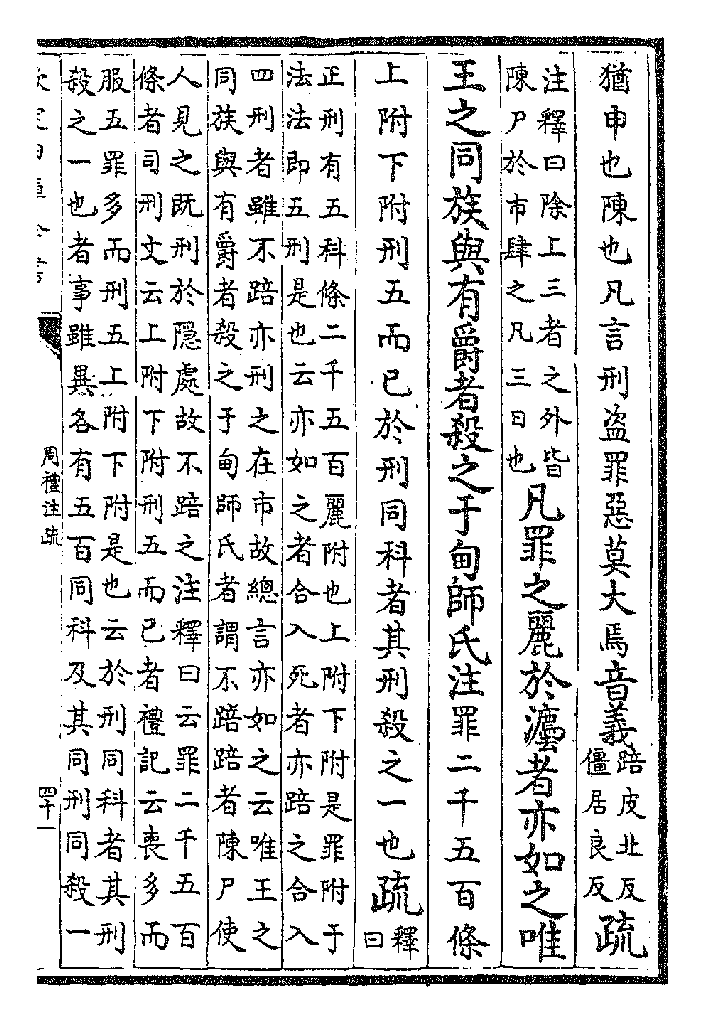 猶申也陳也凡言刑盗罪惡莫大焉音義
踣皮北反
僵居良反
疏
注釋曰除上三者之外皆
陳尸於市肆之凡三日也
凡罪之麗於灋者亦如之唯
王之同族與有爵者殺之于甸師氏注罪二千五百條
上附下附刑五而已於刑同科者其刑殺之一也疏
釋
曰
正刑有五科條二千五百麗附也上附下附是罪附于
法法即五刑是也云亦如之者合入死者亦踣之合入
四刑者雖不踣亦刑之在市故總言亦如之云唯王之
同族與有爵者殺之于甸師氏者謂不踣踣者陳尸使
人見之既刑於隱處故不踣之注釋曰云罪二千五百
條者司刑文云上附下附刑五而已者禮記云喪多而
服五罪多而刑五上附下附是也云於刑同科者其刑
殺之一也者事雖異各有五百同科及其同刑同殺一
周禮注疏
四十一